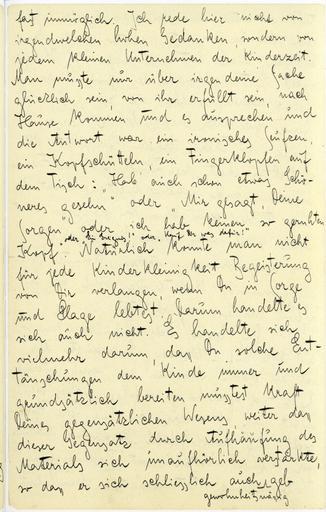 fast unmöglich. Ich rede hier nicht von
irgendwelchen hohen Gedanken, sondern von
jedem kleinen Unternehmen der Kinderzeit.
Man musste nur über irgendeine Sache
glücklich sein, von ihr erfüllt sein, nach
Hause kommen und es aussprechen und
die Antwort war ein ironisches Seufzen,
ein Kopfschütteln, ein Fingerklopfen auf
dem Tisch: "Hab auch schon etwas Schö-
neres gesehn" oder "Mir gesagt Deine
Sorgen" oder "ich hab keinen so geruhten
Kopf" oder "Ein Ereignis!" oder "Kauf Dir was dafür!"
Natürlich konnte man nicht
für jede Kinderkleinigkeit Begeisterung
von Dir verlangen, wenn Du in Sorge
und Plage lebtest. Darum handelte es
sich auch nicht. Es handelte sich
vielmehr darum, dass Du solche Ent-
täuschungen dem Kinde immer und
grundsätzlich bereiten musstest kraft
Deines gegensätzlichen Wesens, weiter dass
dieser Gegensatz durch Anhäufung des
Materials sich unaufhörlich verstärkte,
so dass er sich schliesslich auch
gewohnheitsmässig